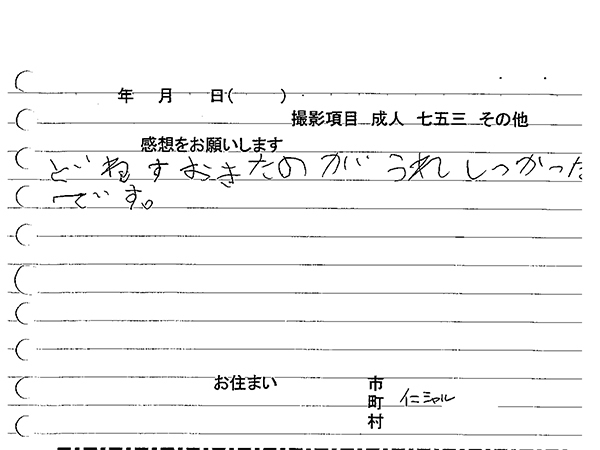 年 月 日( )
撮影項目 成人 七五三 その他
感想をお願いします
どれすおきたのがうれしつかった
です。
お住まい 市
町
村